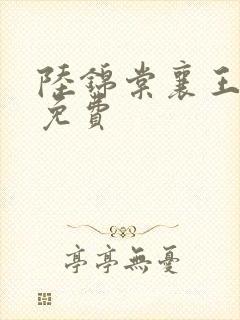 陸錦棠襄王
免費
亭亭無憂